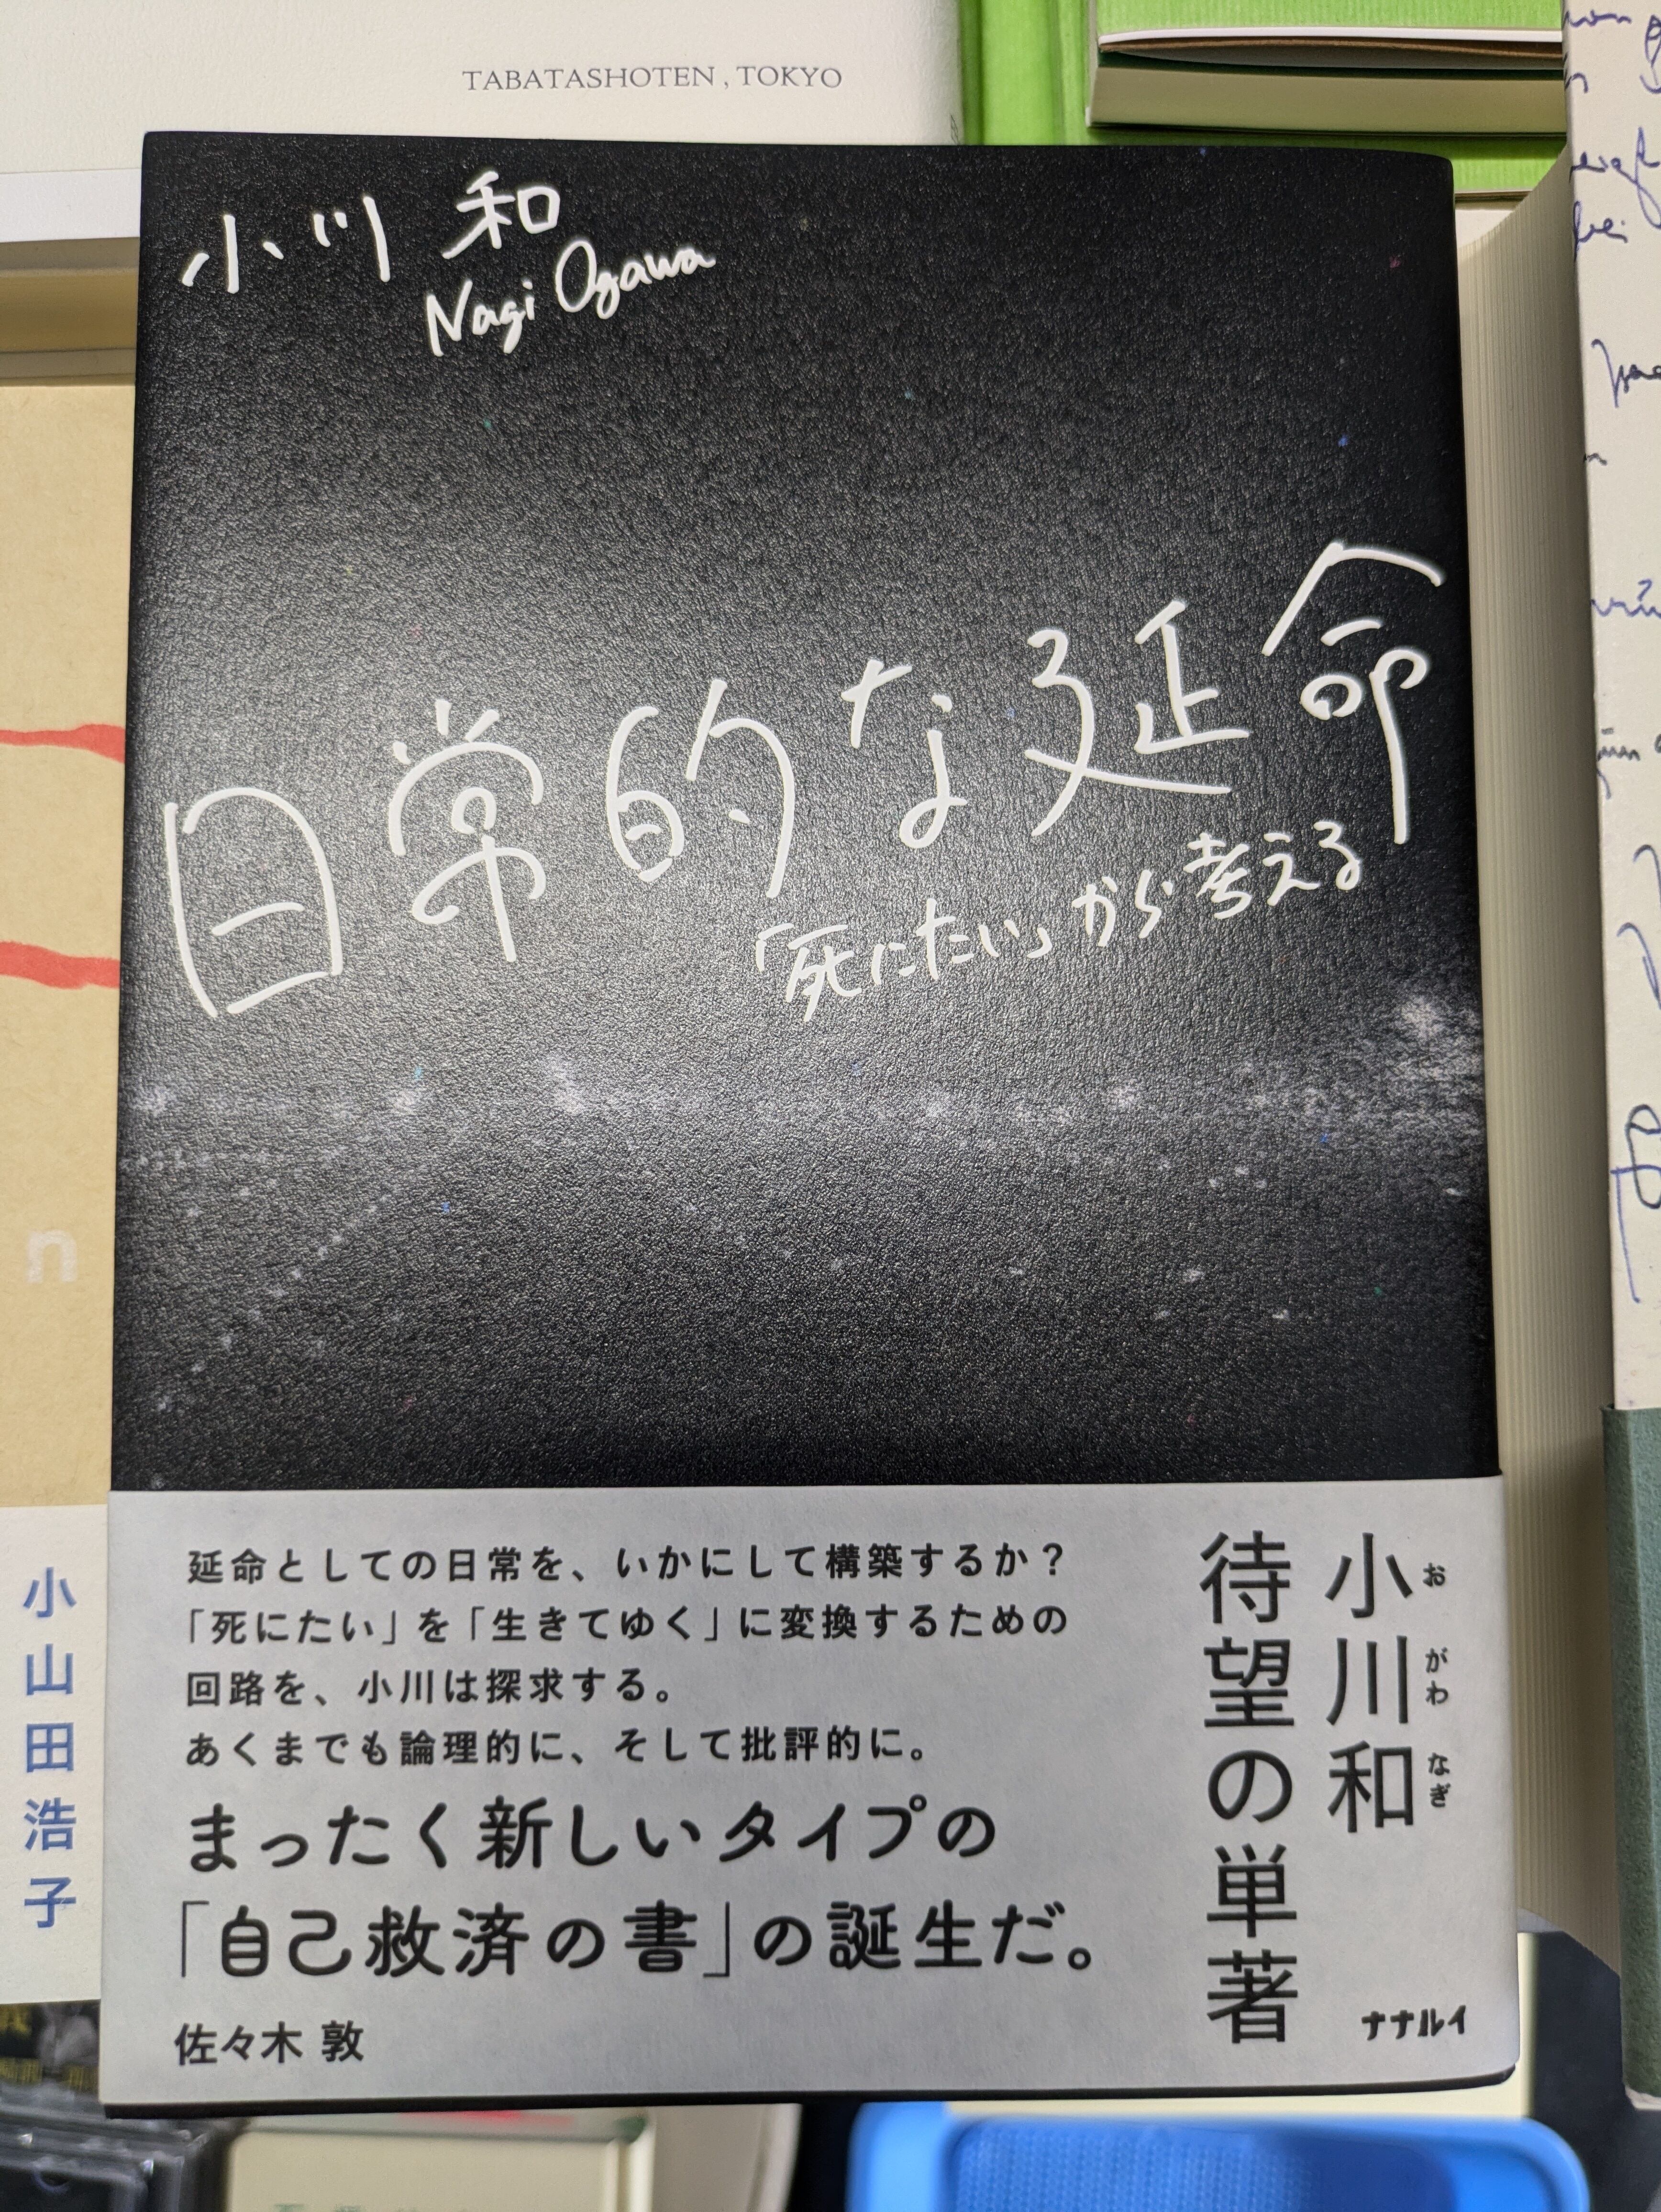 TABATASHOTEN, TOKYO
小川 和
Nagi Ogawa
日常的な延命
「死にたい」から考える
延命としての日常を、いかにして構築するか？
「死にたい」を「生きてゆく」に変換するための
回路を、小川は探求する。
あくまでも論理的に、そして批評的に。
まったく新しいタイプの
「自己救済の書」の誕生だ。
佐々木 敦
小川和
おがわなぎ
待望の単著
ナナルイ
n
小山田浩子